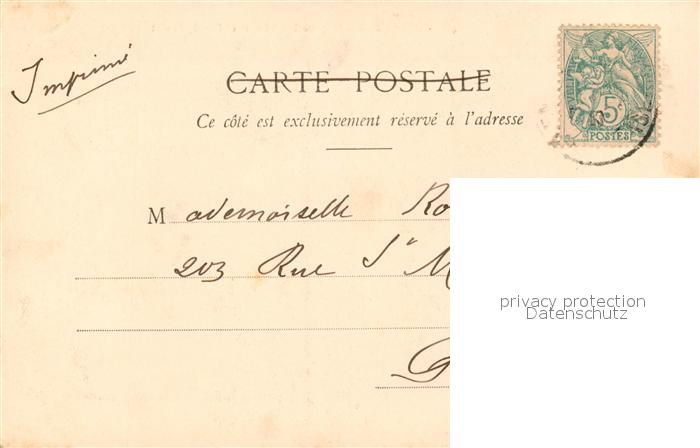 Imprimé
CARTE POSTALE
Ce côté est exclusivement réservé à l'adresse
5c
POSTES
Mademoiselle Ro
203 Rue St M
privacy protection
Datenschutz